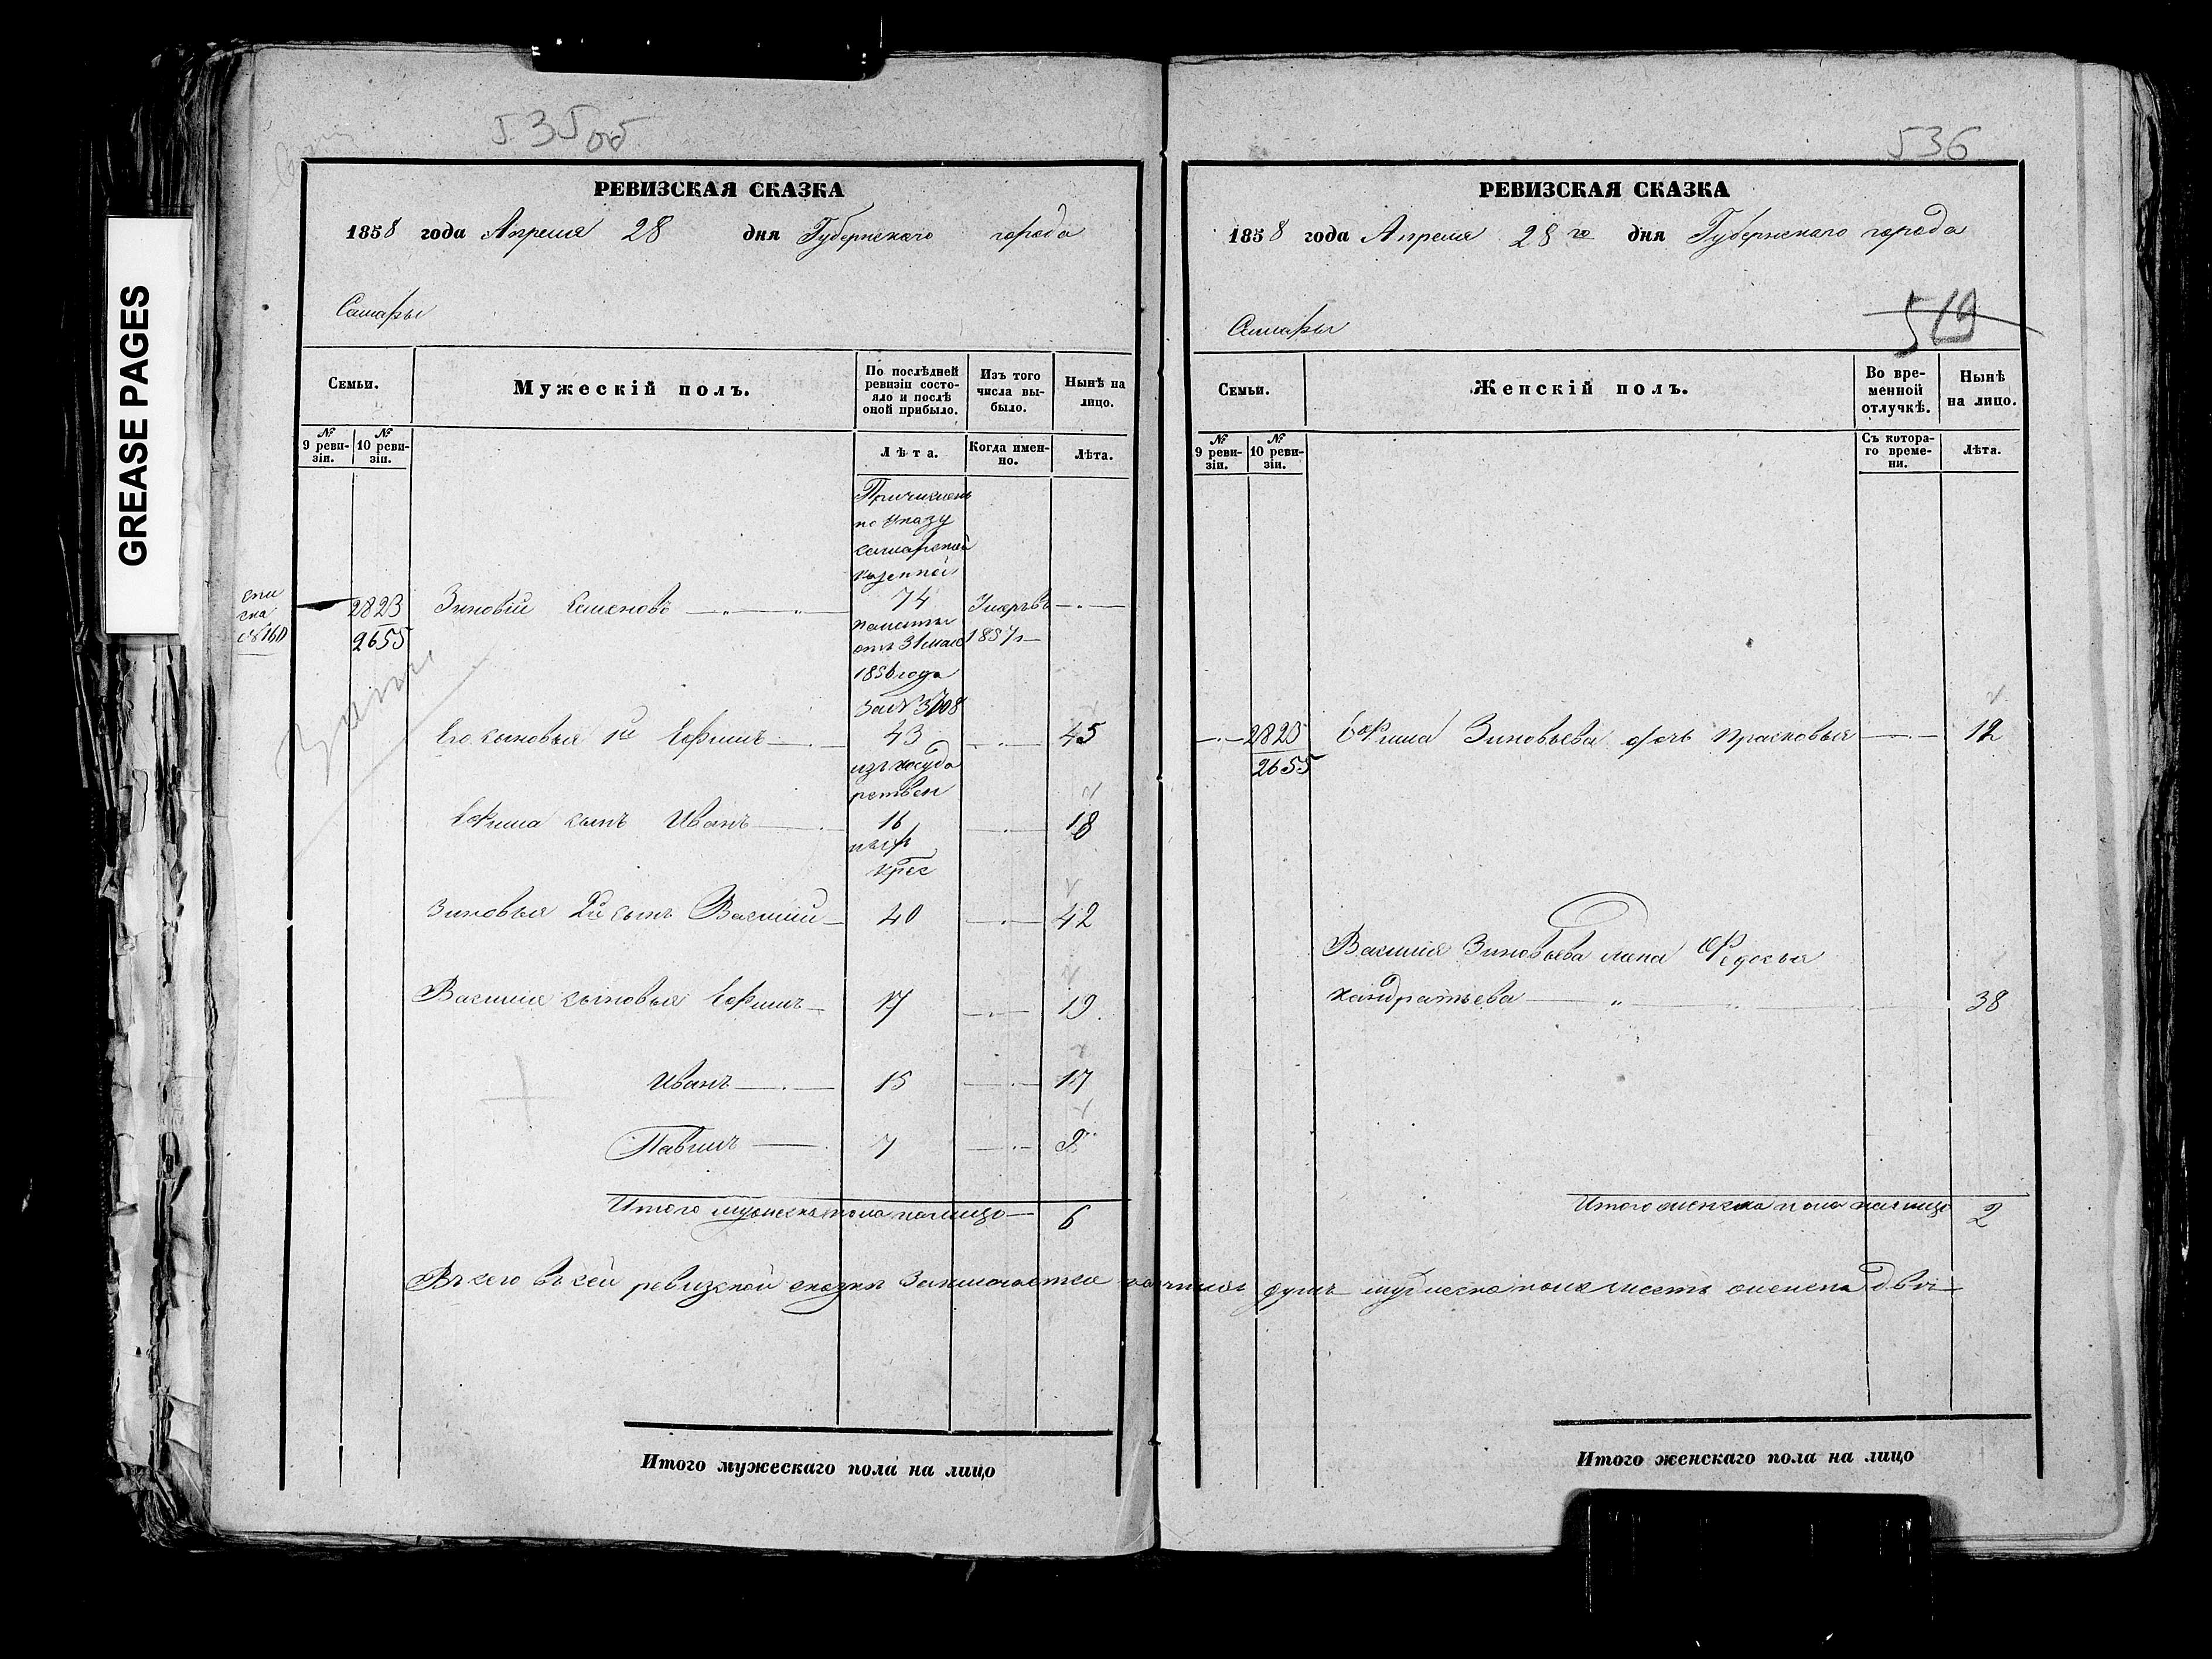 GREASE PAGES
535об
РЕВИЗСКАЯ СКАЗКА
1858 года Апреля 28 дня Губернскаго города
Самары
Семьи.
Мужескій полъ.
По послѣдней ревизіи состояло и послѣ оной прибыло.
Изъ того числа выбыло.
Нынѣ на лицо.
№ 9 ревизіи.
№ 10 ревизіи.
Лѣта.
Когда именно.
Лѣта.
Причислен
по указу
самарской
казенной
2823 Зиновій Семеновъ 74 Умеръ въ
2655 палаты
отъ 31 мая 1857 г
1856 года
за № 3708
Его сыновья 1й Ефимъ 43 45
изъ госуда
рствен
Ефима сынъ Иванъ 16 18
крес
Зиновья 2й сынъ Василий 40 42
Василия сыновья Ефимъ 17 19
Иванъ 15 17
Павелъ 7
Итого мужеска пола налицо 6
Въ сего въ сей ревизской сказке Заключается налицо душъ мужеска пола шесть женска две
Итого мужескаго пола на лицо
536
РЕВИЗСКАЯ СКАЗКА
1858 года Апреля 28го дня Губернскаго города
519
Самары
Семьи.
Женскій полъ.
Во временной отлучкѣ.
Нынѣ на лицо.
№ 9 ревизіи.
№ 10 ревизіи.
Съ котораго времени.
Лѣта.
2823 Ефима Зиновьева дочь Прасковья 12
2655
Василия Зиновьева жена Федосья
кандратьева 38
Итого женска пола налицо 2
Итого женскаго пола на лицо